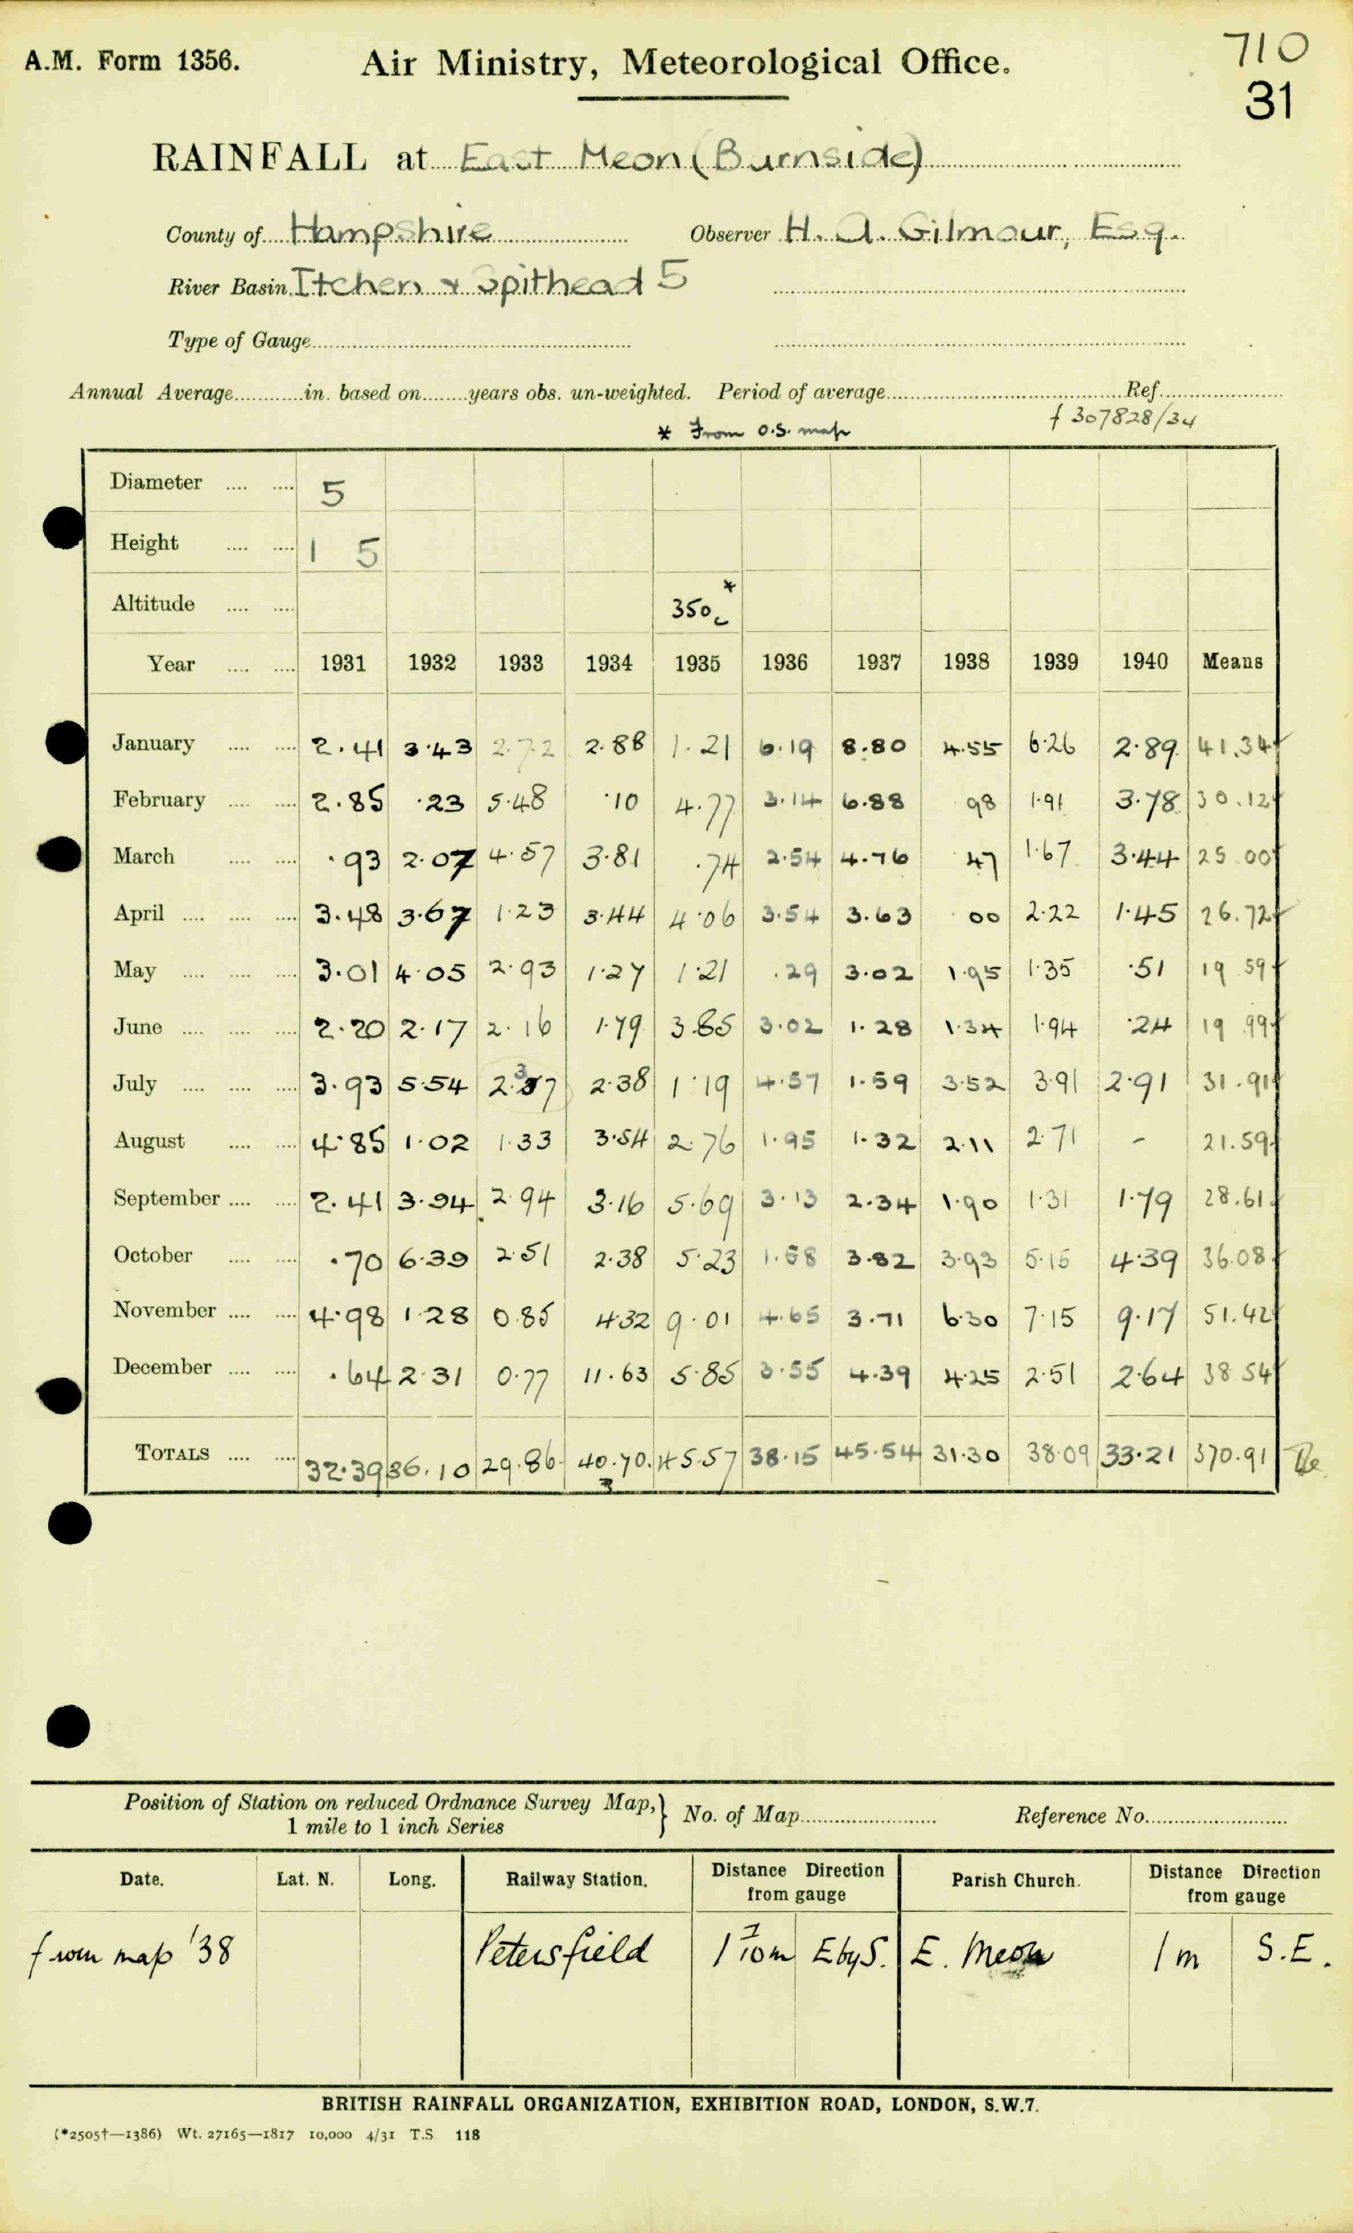 A.M. Form 1356. Air Ministry, Meteorological Office. 710
31
RAINFALL at East Meon (Burnside)
County of Hampshire Observer H. A. Gilmour, Esq.
River Basin Itchen & Spithead 5
Type of Gauge
Annual Average in. based on years obs. un-weighted. Period of average Ref.
* From O.S. map f 307828/34
Diameter 5
Height 1 5
Altitude 350c *
Year 1931 1932 1933 1934 1935 1936 1937 1938 1939 1940 Means
January 2.41 3.43 2.72 2.88 1.21 6.19 8.80 4.55 6.26 2.89 41.34
February 2.85 .23 5.48 .10 4.77 3.14 6.88 98 1.91 3.78 30.12
March .93 2.07 4.57 3.81 .74 2.54 4.76 47 1.67 3.44 25.00
April 3.48 3.67 1.23 3.44 4.06 3.54 3.63 00 2.22 1.45 26.72
May 3.01 4.05 2.93 1.27 1.21 .29 3.02 1.95 1.35 .51 19.59
June 2.20 2.17 2.16 1.79 3.85 3.02 1.28 1.34 1.94 .24 19.99
July 3.93 5.54 2.37 2.38 1.19 4.57 1.59 3.52 3.91 2.91 31.91
August 4.85 1.02 1.33 3.54 2.76 1.95 1.32 2.11 2.71 - 21.59
September 2.41 3.94 2.94 3.16 5.69 3.13 2.34 1.90 1.31 1.79 28.61
October .70 6.39 2.51 2.38 5.23 1.58 3.82 3.93 5.15 4.39 36.08
November 4.98 1.28 0.85 4.32 9.01 4.65 3.71 6.30 7.15 9.17 51.42
December .64 2.31 0.77 11.63 5.85 3.55 4.39 4.25 2.51 2.64 38.54
TOTALS 32.39 36.10 29.86 40.70 45.57 38.15 45.54 31.30 38.09 33.21 370.91
3
Position of Station on reduced Ordnance Survey Map, } No. of Map Reference No.
1 mile to 1 inch Series
Date. Lat. N. Long. Railway Station. Distance Direction from gauge Parish Church. Distance Direction from gauge
from map '38 Petersfield 1 7/10 m E by S. E. Meon 1 m S.E.
BRITISH RAINFALL ORGANIZATION, EXHIBITION ROAD, LONDON, S.W.7.
(*2505†—1386) Wt. 27165—1817 10,000 4/31 T.S 118